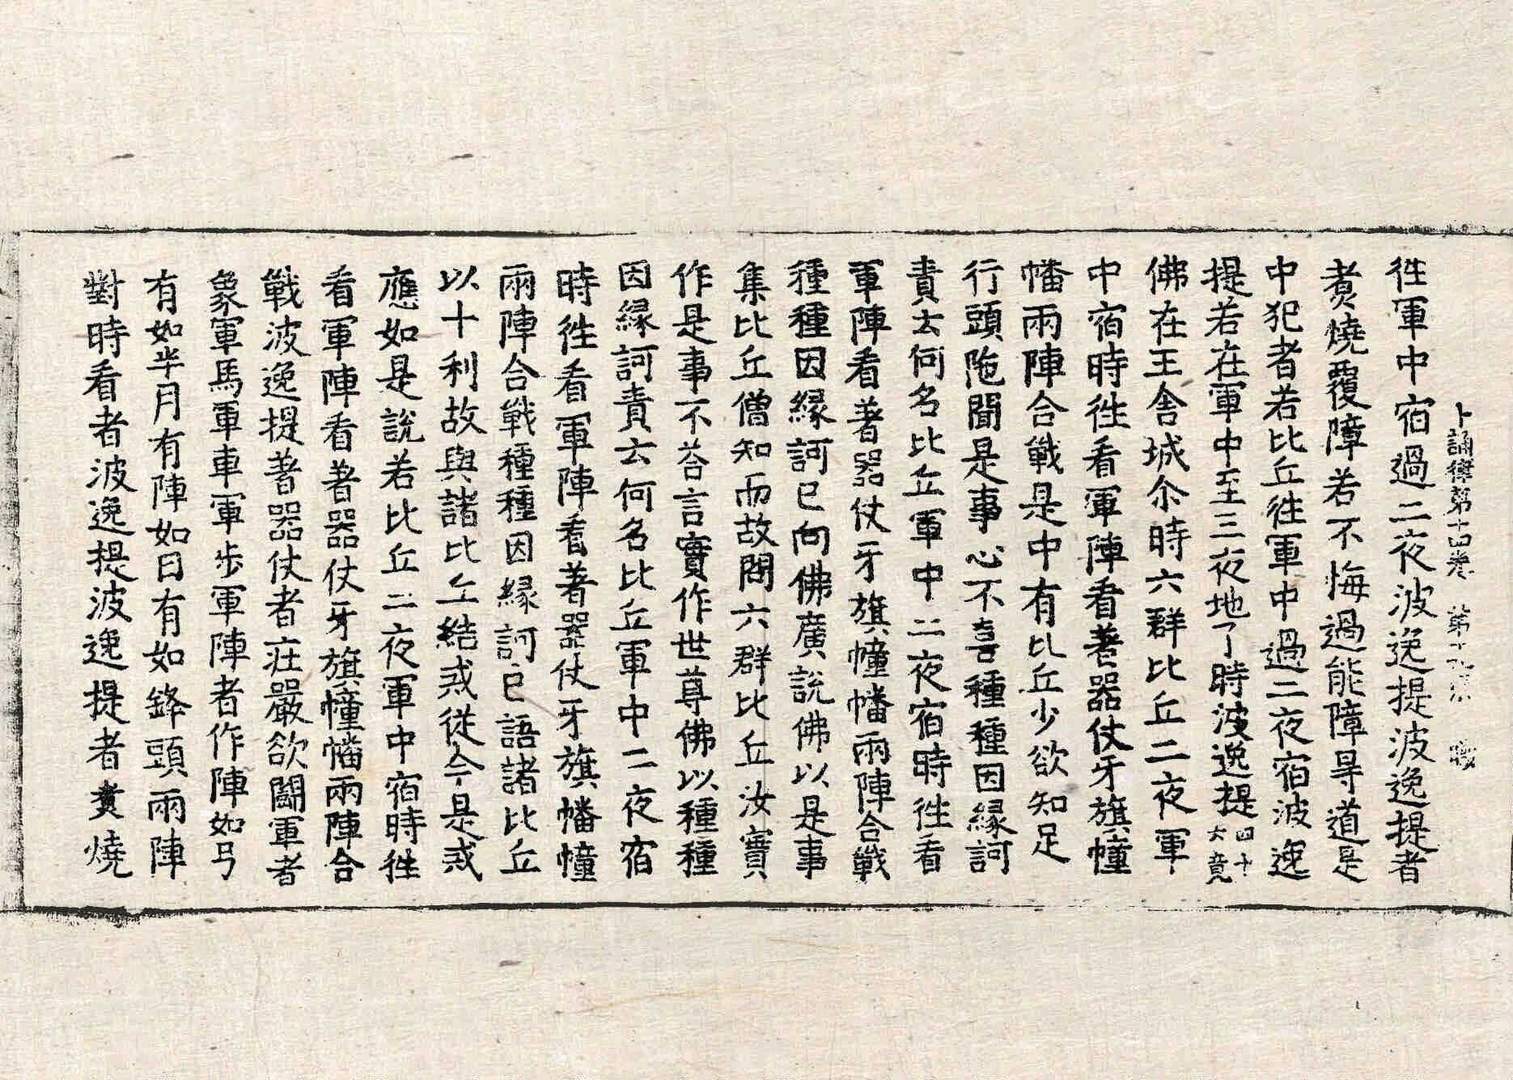 徃軍中宿過二夜波逸提波逸提者
𠁅誦律第十四卷　第十九張
煑燒覆障若不悔過能障㝵道是
中犯者若比丘徃軍中過二夜宿波逸
提若在軍中至三夜地了時波逸提四十六竟
佛在王舍城尒時六群比丘二夜軍
中宿時徃看軍陣看著器仗牙旗幢
幡兩陣合戰是中有比丘少欲知足
行頭陁聞是事心不喜種種因緣訶
責云何名比丘軍中二夜宿時徃看
軍陣看著器仗牙旗幢幡兩陣合戰
種種因緣訶已向佛廣說佛以是事
集比丘僧知而故問六群比丘汝實
作是事不荅言實作世尊佛以種種
因緣訶責云何名比丘軍中二夜宿
時徃看軍陣看著器仗牙旗幡幢
兩陣合戰種種因緣訶已語諸比丘
以十利故與諸比丘結戒從今是戒
應如是說若比丘二夜軍中宿時徃
看軍陣看著器仗牙旗幢幡兩陣合
戰波逸提著器仗者莊嚴欲鬪軍者
象軍馬軍車軍步軍陣者作陣如弓
有如半月有陣如日有如鋒頭兩陣
對時看者波逸提波逸提者煑燒